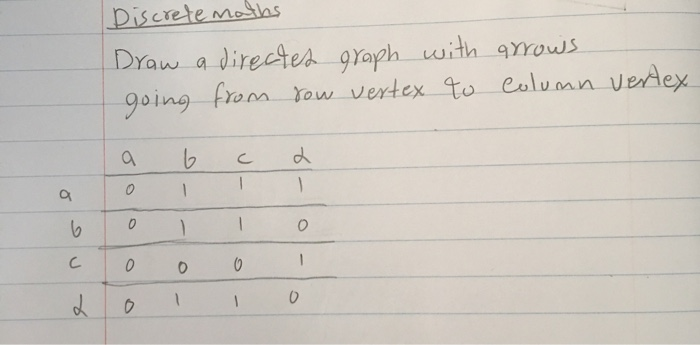 Discrete maths
Draw a directed graph with arrows
going from row vertex to column vertex
a b c d
a 0 1 1 1
b 0 1 1 0
c 0 0 0 1
d 0 1 1 0